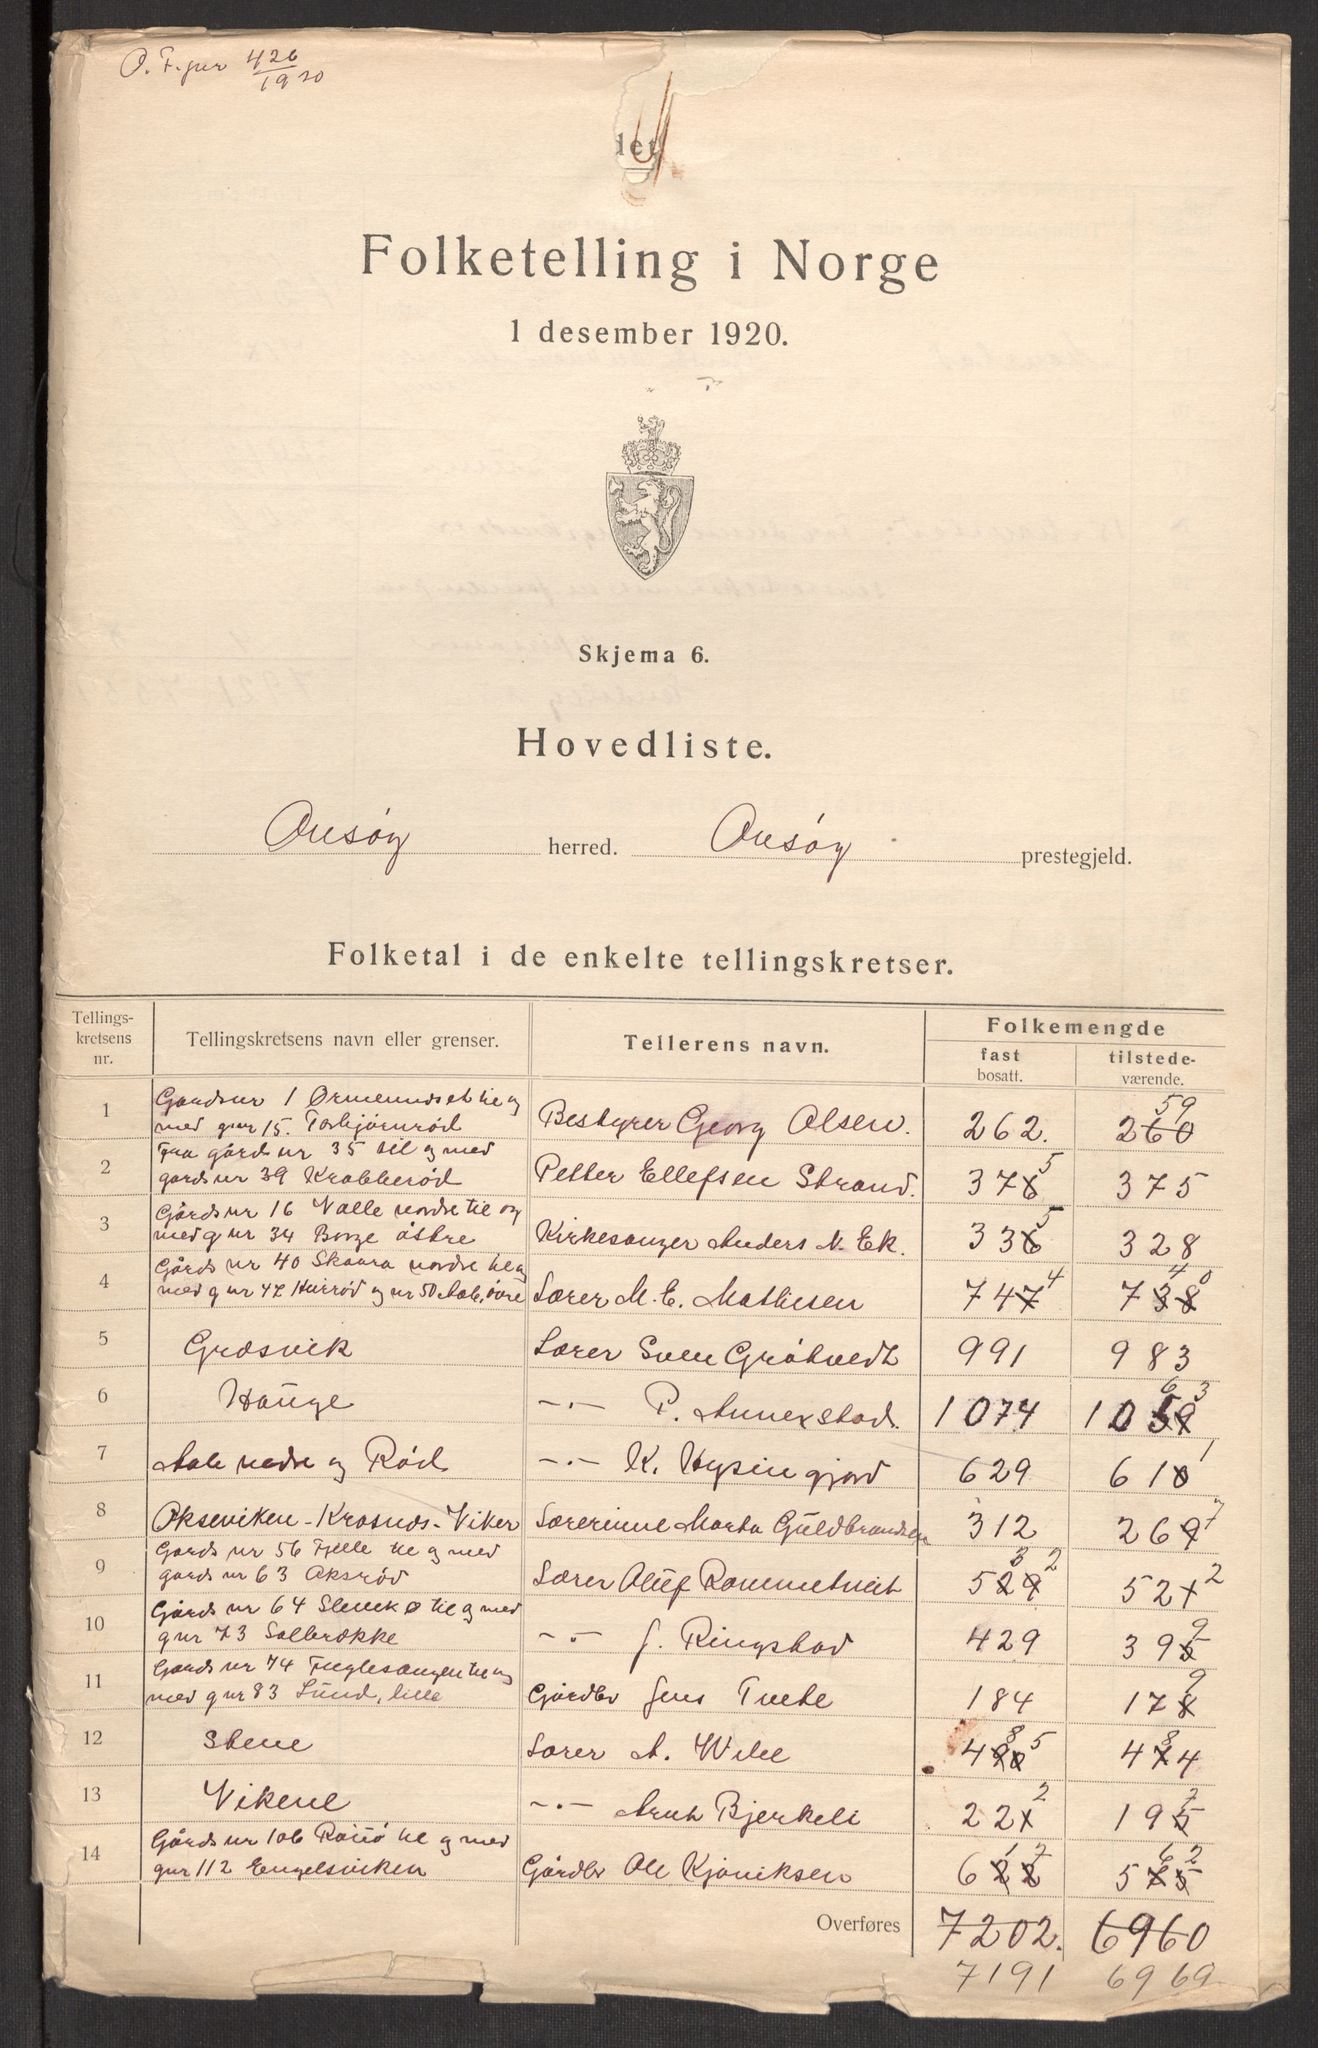 O. F. jnr 426/1920
det
Folketelling i Norge
1 desember 1920.
Skjema 6.
Hovedliste.
Onsøy herred. Onsøy prestegjeld.
Folketal i de enkelte tellingskretser.
Tellings-kretsens nr. Tellingskretsens navn eller grenser. Tellerens navn. Folkemengde
fast bosatt. tilstede-værende.
1 Gardsnr 1 Ørmennudset til og
med gnr 15. Torbjørnrød Bestyrer Georg Olsen. 262. 260 59
2 Fra gårds nr 35 til og med
gardsnr 39 Krabberød Petter Ellefsen Strand. 376 5 375
3 Gårds nr 16 Valle nordre til og
med g nr 34 Borge østre Kirkesanger Anders N. Ek. 336 5 328
4 Gårds nr 40 Skaara nordre til og
med g nr 47 Hurrød og nr 50 Aale, øvre Lærer M. E. Mathiesen 747 4 738 4 0
5 Græsvik Lærer Sven Grøtvedt 991 983
6 Hauge -"- P. Annexstad. 1074 1059 6 3
7 Aale nedre og Rød -"- K. Hysingjord 629 610 1
8 Økseviken-Krosnes-Viker Lærerinne Marta Guldbrandsen 312 269 7
9 Gards nr 56 Fjelle til og med
gards nr 63 Oksrød Lærer Oluf Rommetveit 529 3 2 521 2
10 Gårds nr 64 Slevik ø til og med
g nr 73 Solbrække -"- J. Ringstad 429 395 9
11 Gards nr 74 Fuglesangen til og
med g nr 83 Lund, lille Gårdbr Jens Tvete 184 178 9
12 Stene Lærer A. Wiel 490 8 5 474 8
13 Vikene -"- Arnt Bjerkeli 221 2 195 7
14 Gårds nr 106 Rauø til og med
gnr 112 Engelsviken Gårdbr Ole Kjøniksen 622 1 7 575 6 2
Overføres 7202. 6960
7191 6969